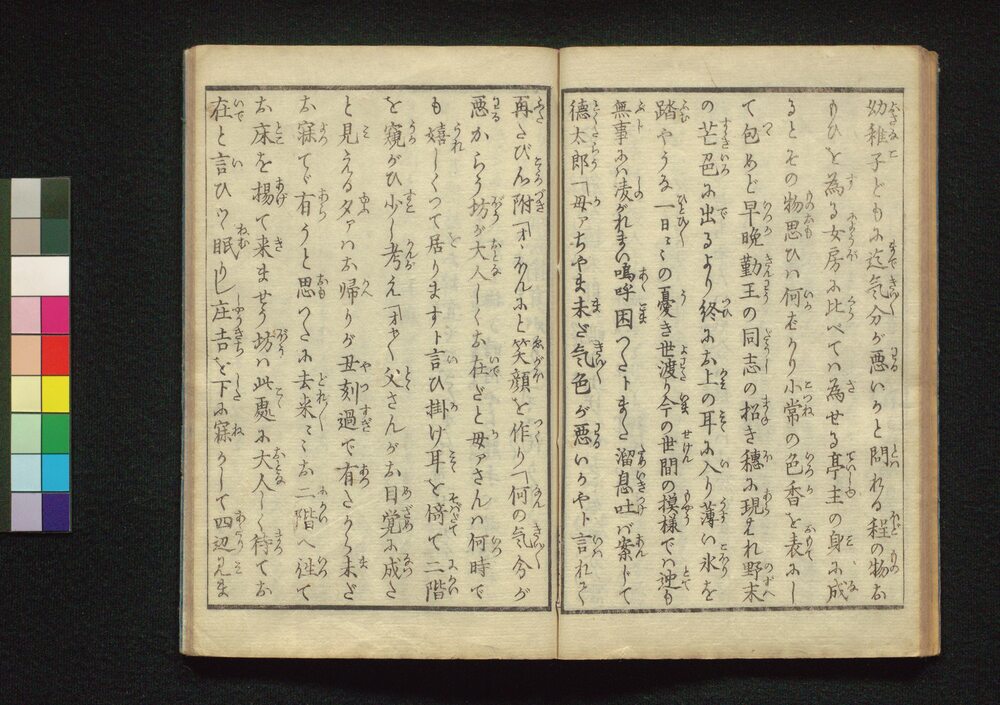 幼稚子どもに迄気分が悪いかと問れる程の物お
もひを為る女房に比べてハ為せる亭主の身に成
るとその物思ひハ何ばかり小常の色香を表にし
て包めど早晩勤王の同志の招き穂に現はれ野末
の芒色に出るより終にお上の耳に入り薄い氷を
踏やうな一日〻の憂き世渡り今の世間の模様でハ迚も
無事にハ凌がれまい嗚呼困つたトまた溜息吐バ案じて
徳太郎「母アちやま未だ気色が悪いかやト言れて
再たびん附「オヽほんにと笑顔を作り「何の気分が
悪からう坊が大人しくお在だと母アさんハ何時で
も嬉しくつて居りますト言ひ掛け耳を倚て二階
を窺がひ少し考え「オヤ〱父さんがお目覚に成た
と見えるタアハお帰りが丑刻過で有たから未だ
お寐でゞ有うと思つたに去来〻お二階へ往て
お床を揚て来ませう坊ハ此処に大人しく待てお
在と言ひつゝ眠りし庄吉を下に寐かして四辺見ま